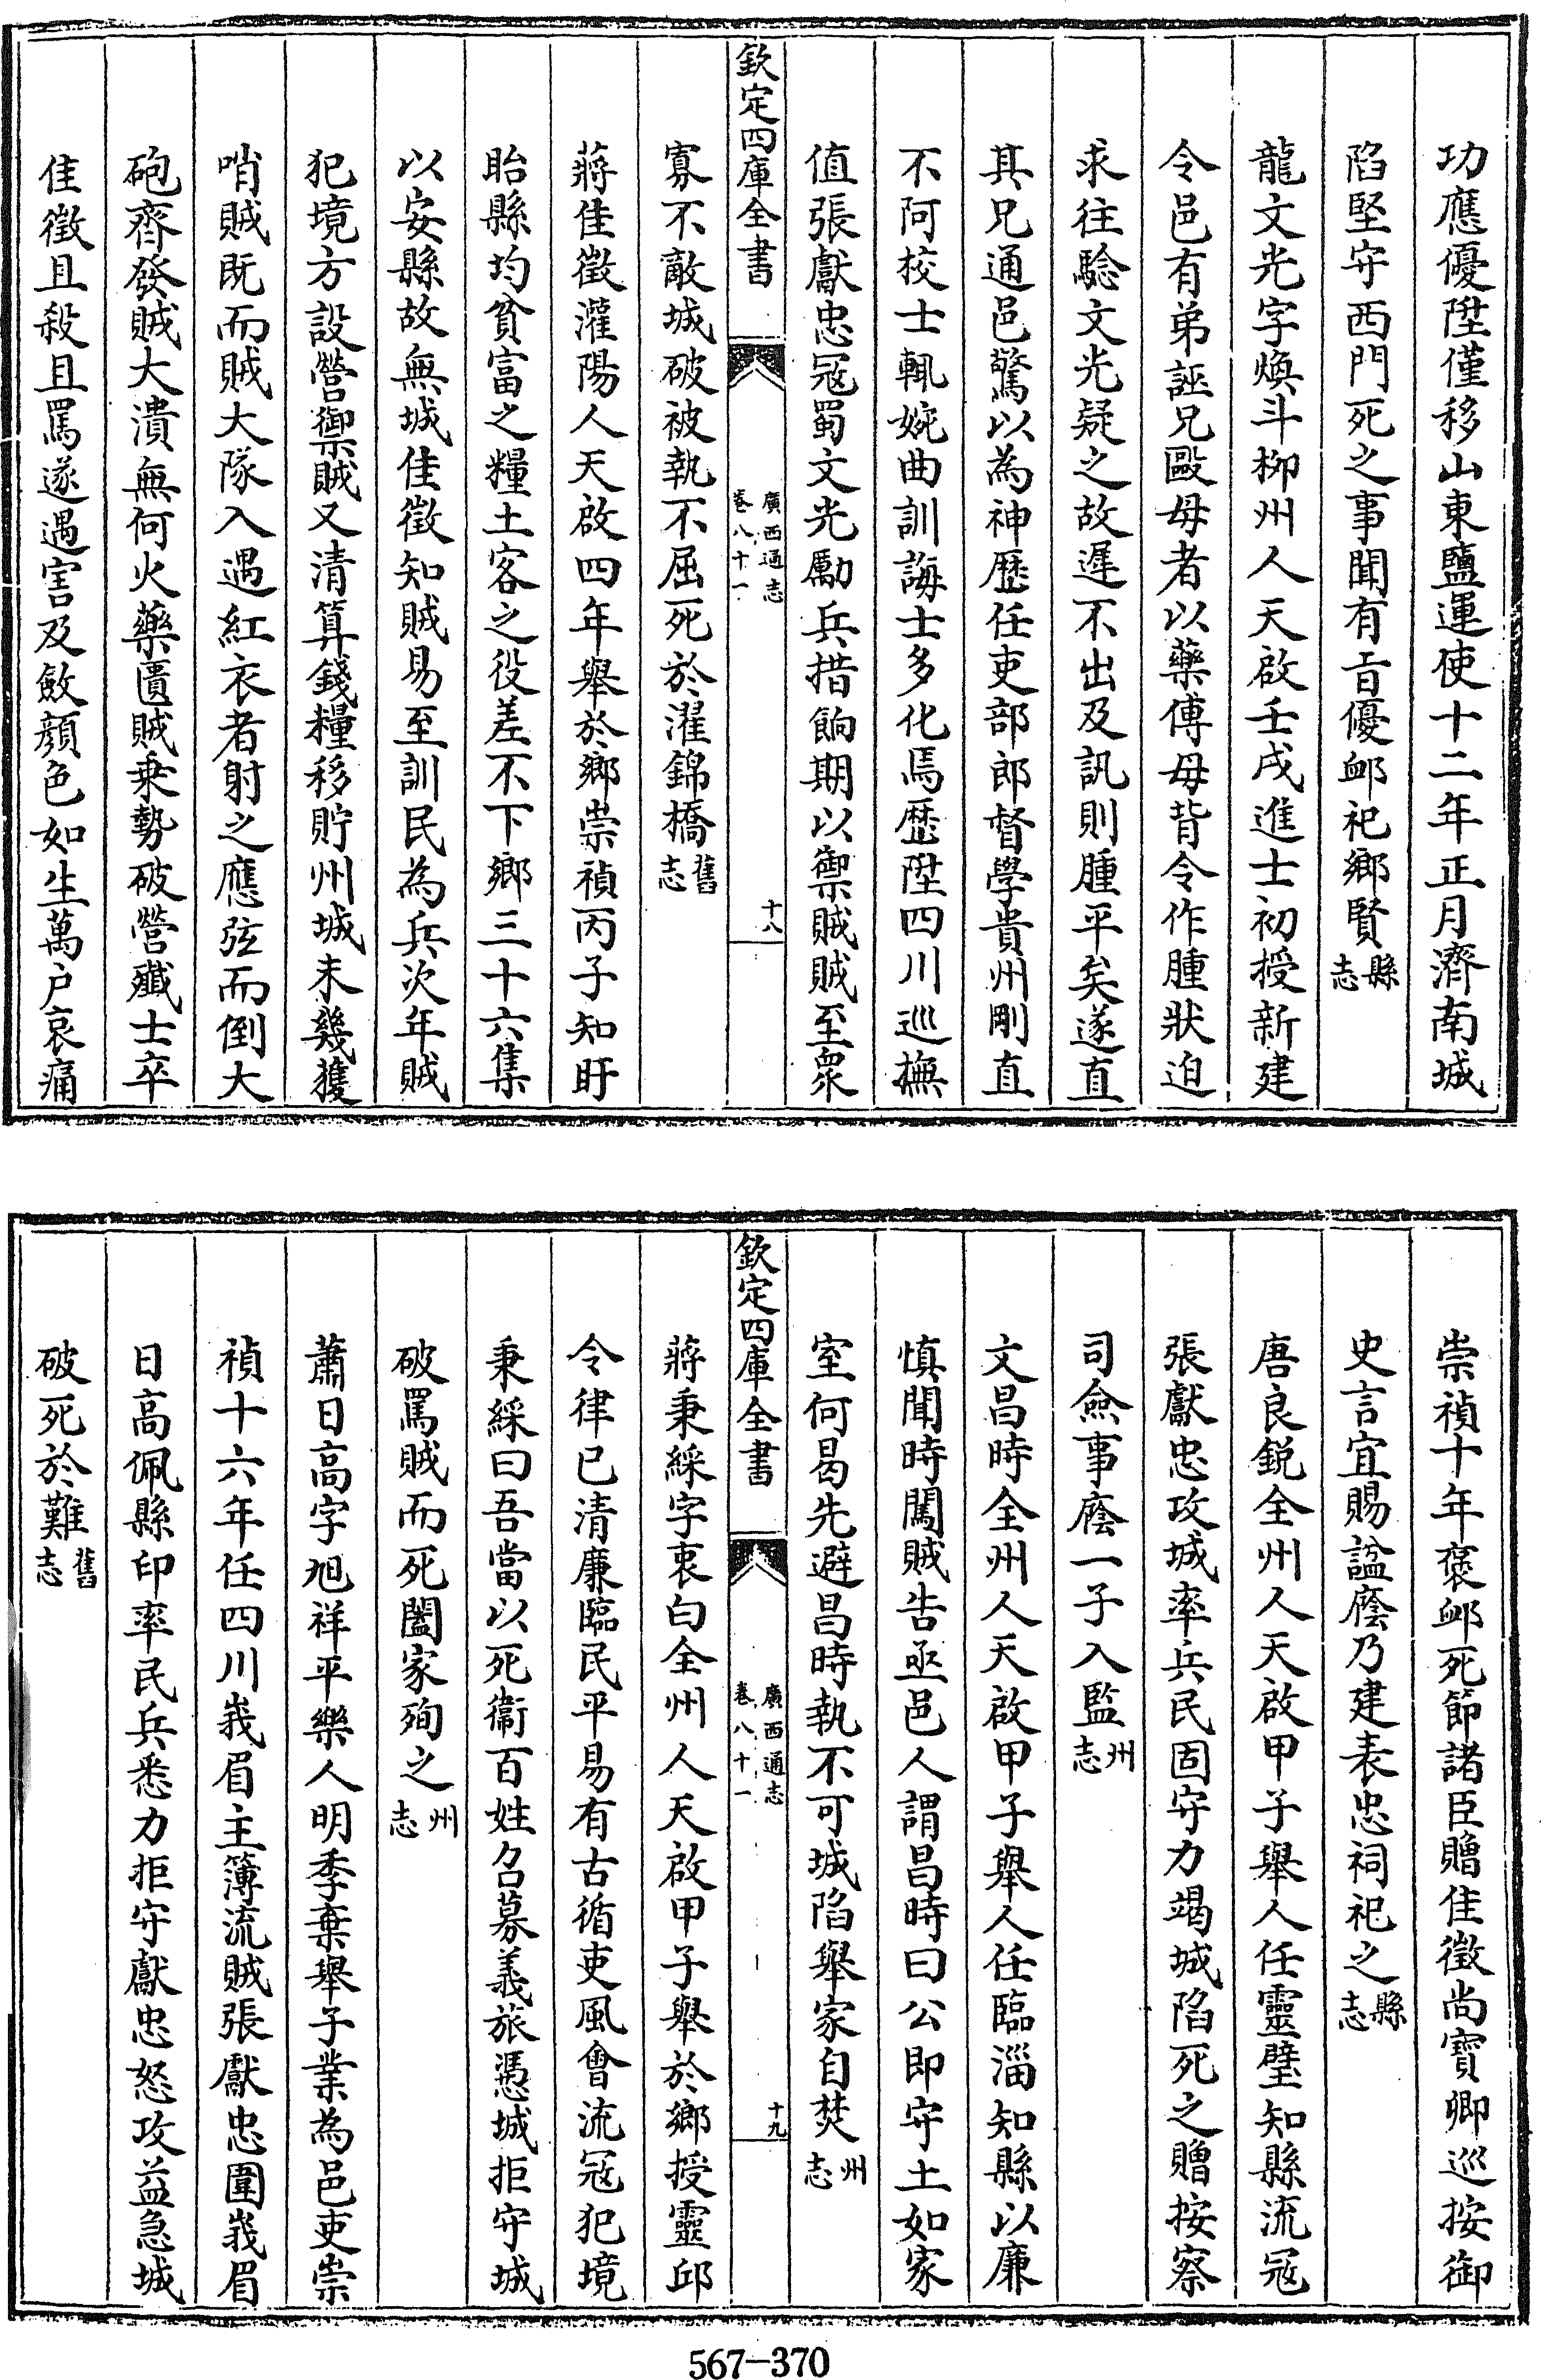 功應優陞僅移山東鹽運使十二年正月濟南城
陷堅守西門死之事聞有㫖優䘏祀鄉賢縣志
龍文光字煥斗柳州人天啟壬戌進士初授新建
令邑有弟誣兄毆母者以藥傅母背令作腫狀迫
求往驗文光疑之故遲不出及訊則腫平矣遂直
其兄通邑驚以為神歷任吏部郎督學貴州剛直
不阿校士輒婉曲訓誨士多化焉歷陞四川巡撫
值張獻忠冦蜀文光勵兵措餉期以禦賊賊至衆
欽定四庫全書
廣西通志
卷八十一
十八
寡不敵城破被執不屈死於濯錦橋舊志
蔣佳徵灌陽人天啟四年舉於鄉崇禎丙子知盱
眙縣均貧富之糧土客之役差不下鄉三十六集
以安縣故無城佳徵知賊易至訓民為兵次年賊
犯境方設營禦賊又清算錢糧移貯州城未幾獲
哨賊既而賊大隊入遇紅衣者射之應弦而倒大
砲齊發賊大潰無何火藥匱賊乗勢破營殲士卒
佳徵且殺且罵遂遇害及斂顔色如生萬户哀痛
崇禎十年褒䘏死節諸臣贈佳徵尚寶卿巡按御
史言宜賜諡廕乃建表忠祠祀之縣志
唐良銳全州人天啟甲子舉人任靈璧知縣流冦
張獻忠攻城率兵民固守力竭城陷死之贈按察
司僉事廕一子入監州志
文昌時全州人天啟甲子舉人任臨淄知縣以廉
慎聞時闖賊告亟邑人謂昌時曰公即守土如家
室何曷先避昌時執不可城陷舉家自焚州志
欽定四庫全書
廣西通志
卷八十一
十九
蔣秉綵字衷白全州人天啟甲子舉於鄉授靈邱
令律已清廉臨民平易有古循吏風會流冦犯境
秉綵曰吾當以死衞百姓召募義旅憑城拒守城
破罵賊而死闔家殉之州志
蕭日高字旭祥平樂人明季棄舉子業為邑吏崇
禎十六年任四川峩眉主簿流賊張獻忠圍峩眉
日高佩縣印率民兵悉力拒守獻忠怒攻益急城
破死於難舊志
567-370